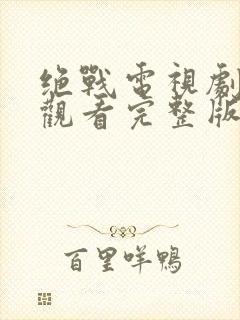 绝戰電視劇
觀看完整版
百里咩鴨